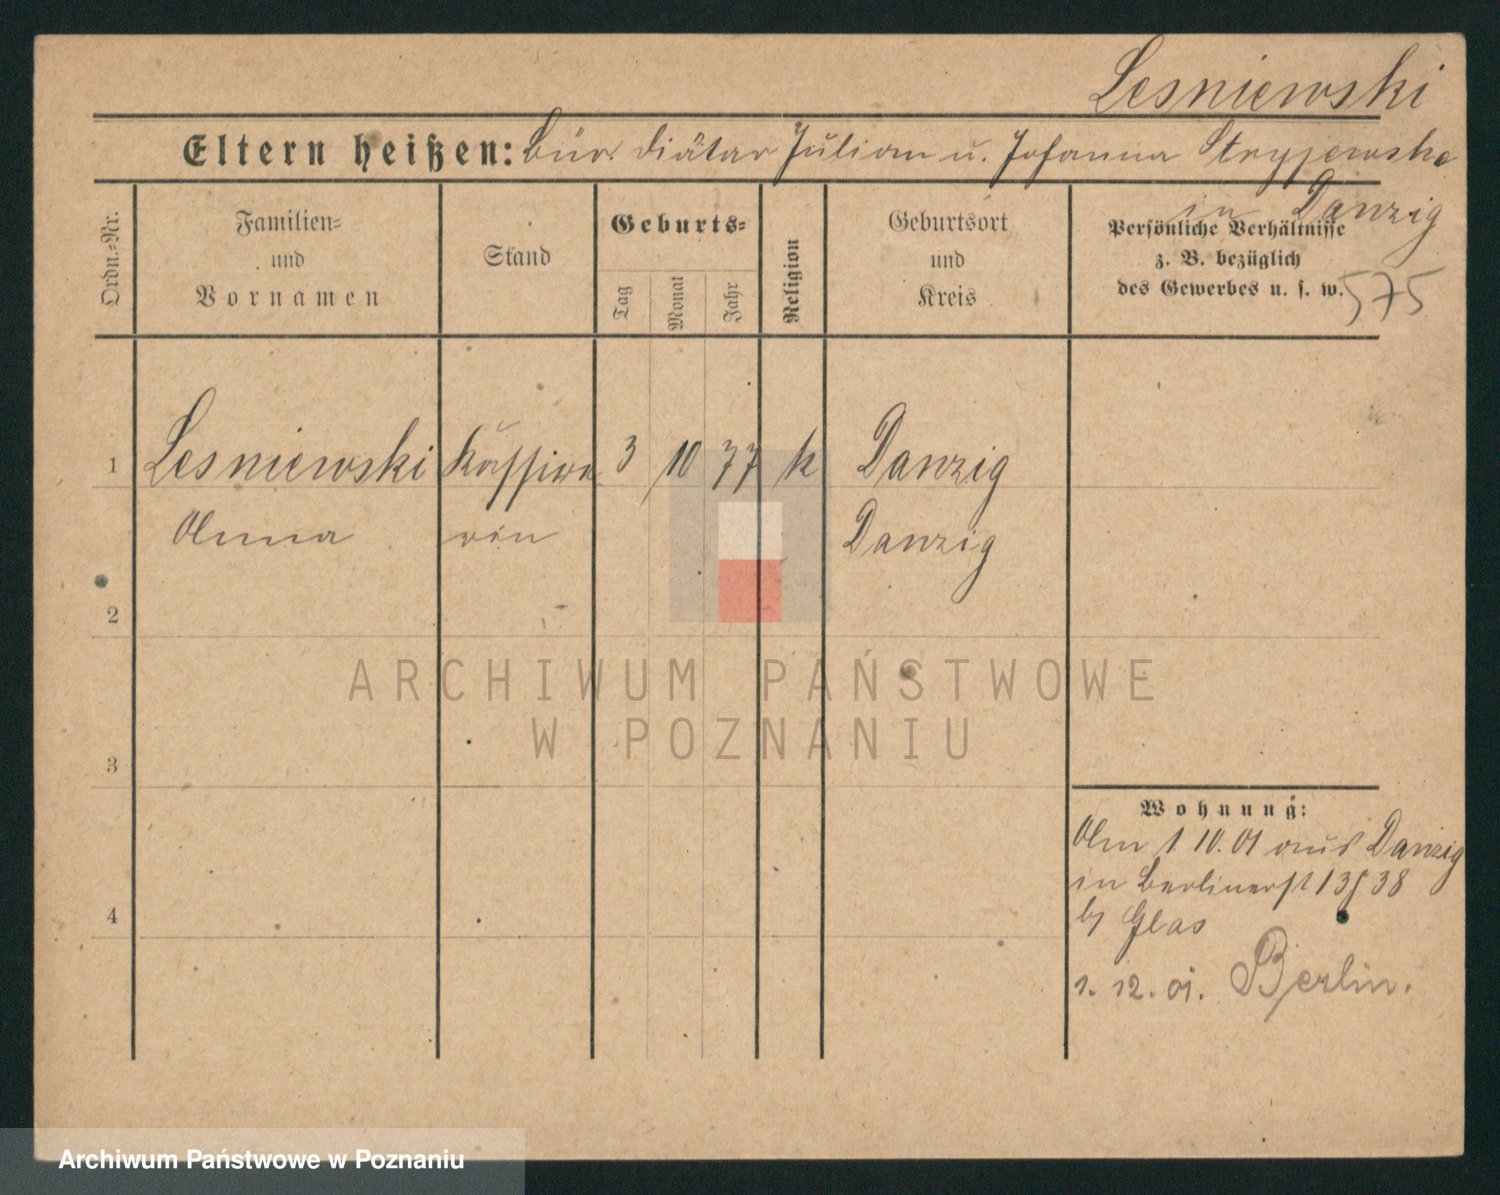 Lesniewski
Eltern heißen: Bür. Diätar Julian u. Johanna Stryjewska
in Danzig
Ordn.=Nr.
Familien=
und
Vornamen
Stand
Geburts=
Tag
Monat
Jahr
Religion
Geburtsort
und
Kreis
Persönliche Verhältnisse
z. B. bezüglich
des Gewerbes u. s. w.
575
1 Lesniewski Kassire 3 10 77 k Danzig
Anna rin Danzig
2
3
4
Wohnung:
Am 1 10. 01 aus Danzig
in Berlinerst 138
by Glas
1. 12. 01. Berlin.
ARCHIWUM PAŃSTWOWE
W POZNANIU
Archiwum Państwowe w Poznaniu